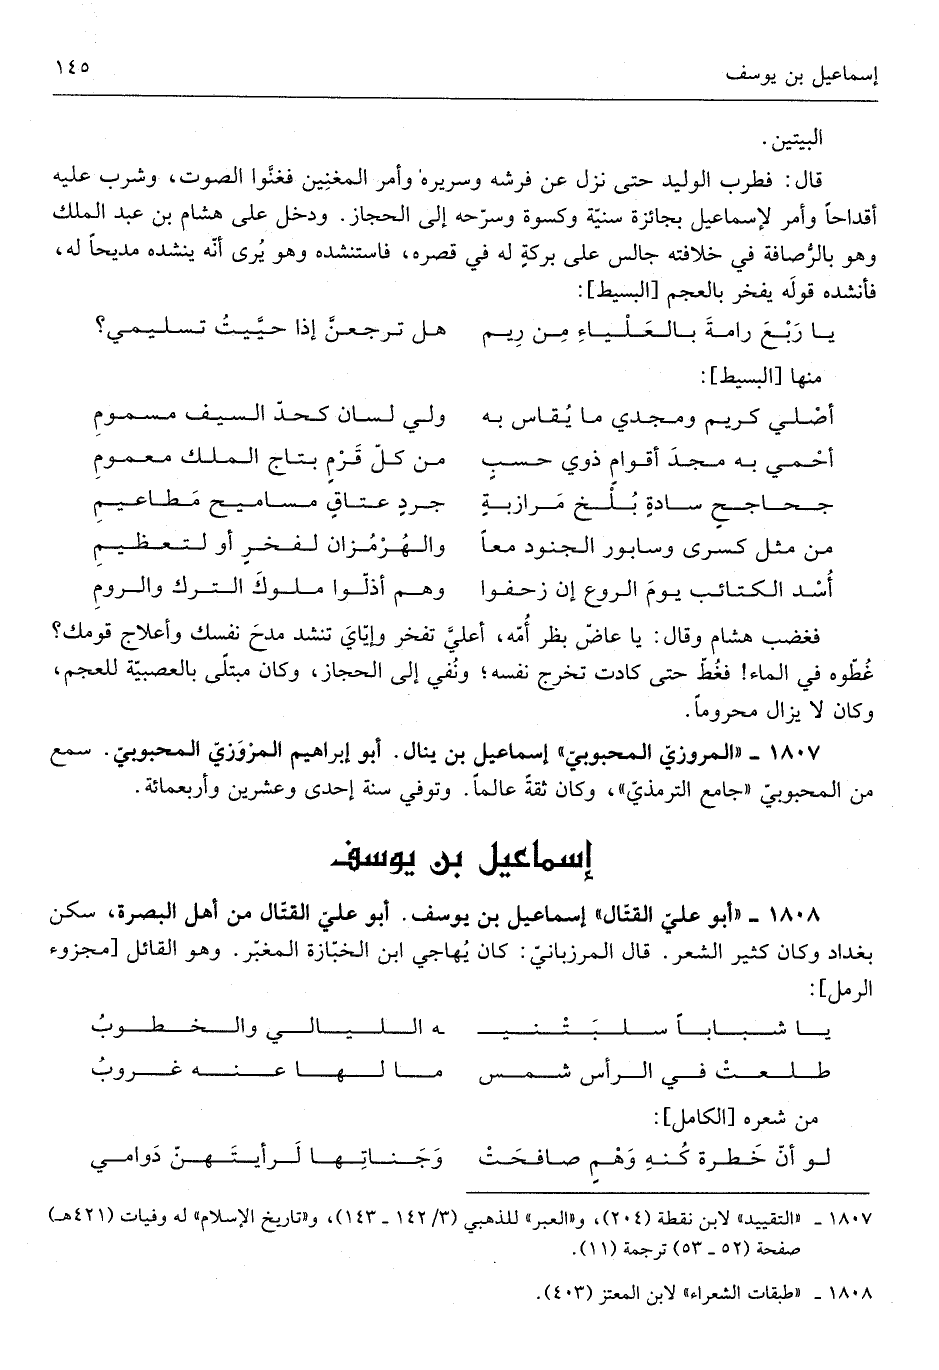 إسماعيل بن يوسف ١٤٥
البيتين.
قال: فطرب الوليد حتى نزل عن فرشه وسريره وأمر المغنين فغنَّوا الصوت، وشرب عليه
أقداحاً وأمر لإسماعيل بجائزة سنيّة وكسوة وسرّحه إلى الحجاز. ودخل على هشام بن عبد الملك
وهو بالرُّصافة في خلافته جالس على بركةٍ له في قصره، فاستنشده وهو يُرى أنّه ينشده مديحاً له،
فأنشده قولَه يفخر بالعجم [البسيط]:
يا رَبْعَ رامةَ بالعَلْياءِ مِن رِيم هل ترجعنَّ إذا حيَّيتُ تسليمي؟
منها [البسيط]:
أصْلي كريم ومجدي ما يُقاس به ولي لسان كحدّ السيف مسمومِ
أحْمي به مجدَ أقوامٍ ذوي حسبٍ من كلّ قَرْمٍ بتاج الملك معمومِ
جحاجحٍ سادةٍ بُلْخٍ مَرازبةٍ جردٍ عتاقٍ مساميح مَطاعيمِ
من مثل كسرى وسابور الجنود معاً والهُرْمُزان لفخرٍ أو لتعظيمِ
أُسْد الكتائب يومَ الروع إن زحفوا وهم أذلّوا ملوكَ الترك والرومِ
فغضب هشام وقال: يا عاضّ بظر أُمّه، أعليَّ تفخر وإيّايَ تنشد مدحَ نفسك وأعلاج قومك؟
غُطّوه في الماء! فغُطّ حتى كادت تخرج نفسه؛ ونُفي إلى الحجاز، وكان مبتلًى بالعصبيّة للعجم،
وكان لا يزال محروماً.
١٨٠٧ ـ «المروزيّ المحبوبيّ» إسماعيل بن ينال. أبو إبراهيم المزوَزيّ المحبوبيّ. سمع
من المحبوبيّ «جامع الترمذيّ»، وكان ثقةً عالماً. وتوفي سنة إحدى وعشرين وأربعمائة.
إسماعيل بن يوسف
١٨٠٨ ـ «أبو عليّ القتّال» إسماعيل بن يوسف. أبو عليّ القتّال من أهل البصرة، سكن
بغداد وكان كثير الشعر. قال المرزبانيّ: كان يُهاجي ابن الخبّازة المغبّر. وهو القائل [مجزوء
الرمل]:
يا شباباً سلبَتْنيـ ـه الليالي والخطوبُ
طلعتْ في الرأس شمس ما لها عنه غروبُ
من شعره [الكامل]:
لو أنّ خَطرة كُنهِ وَهْمٍ صافحتْ وَجَناتِها لَرأيتَهنّ دَوامي
١٨٠٧ ـ «التقييد» لابن نقطة (٢٠٤)، و«العبر» للذهبي (٣/ ١٤٢ ـ ١٤٣)، و«تاريخ الإسلام» له وفيات (٤٢١هـ)
صفحة (٥٢ ـ ٥٣) ترجمة (١١).
١٨٠٨ ـ «طبقات الشعراء» لابن المعتز (٤٠٣).